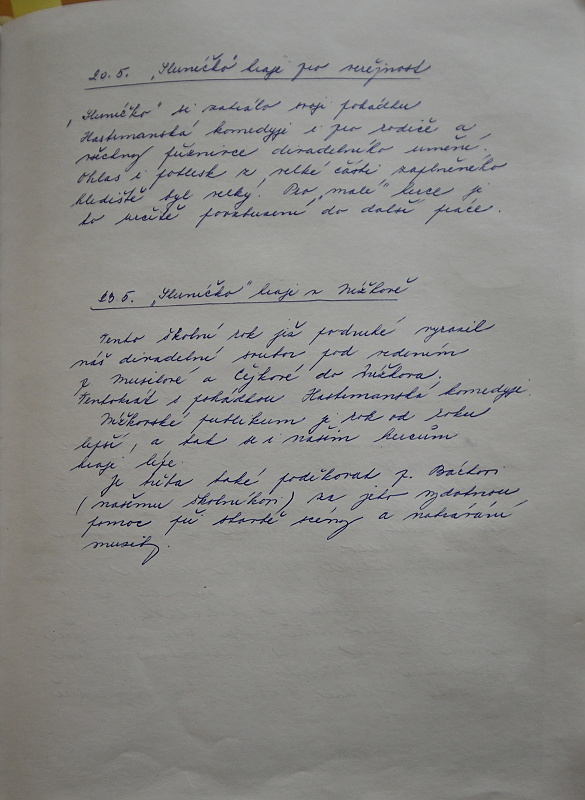 20. 5. „Sluníčko" hraje pro veřejnost
„Sluníčko" si zahrálo svoji pohádku
Hastrmanská komedyje i pro rodiče a
všechny příznivce divadelního umění.
Ohlas i potlesk z velké části zaplněného
hlediště byl velký. Pro „malé" herce je
to určitě povzbuzení do další práce.
23. 5. „Sluníčko" hraje v Nížkově
Tento školní rok již podruhé vyrazil
náš divadelní soubor pod vedením
p. Musilové a Cejkové do Nížkova.
Tentokrát s pohádkou Hastrmanská komedyje.
Nížkovské publikum je rok od roku
lepší, a tak se i našim hercům
hraje lépe.
Je třeba také poděkovat p.
(našemu školníkovi) za jeho vydatnou
pomoc při stavbě scény a nahrávání
musiky.